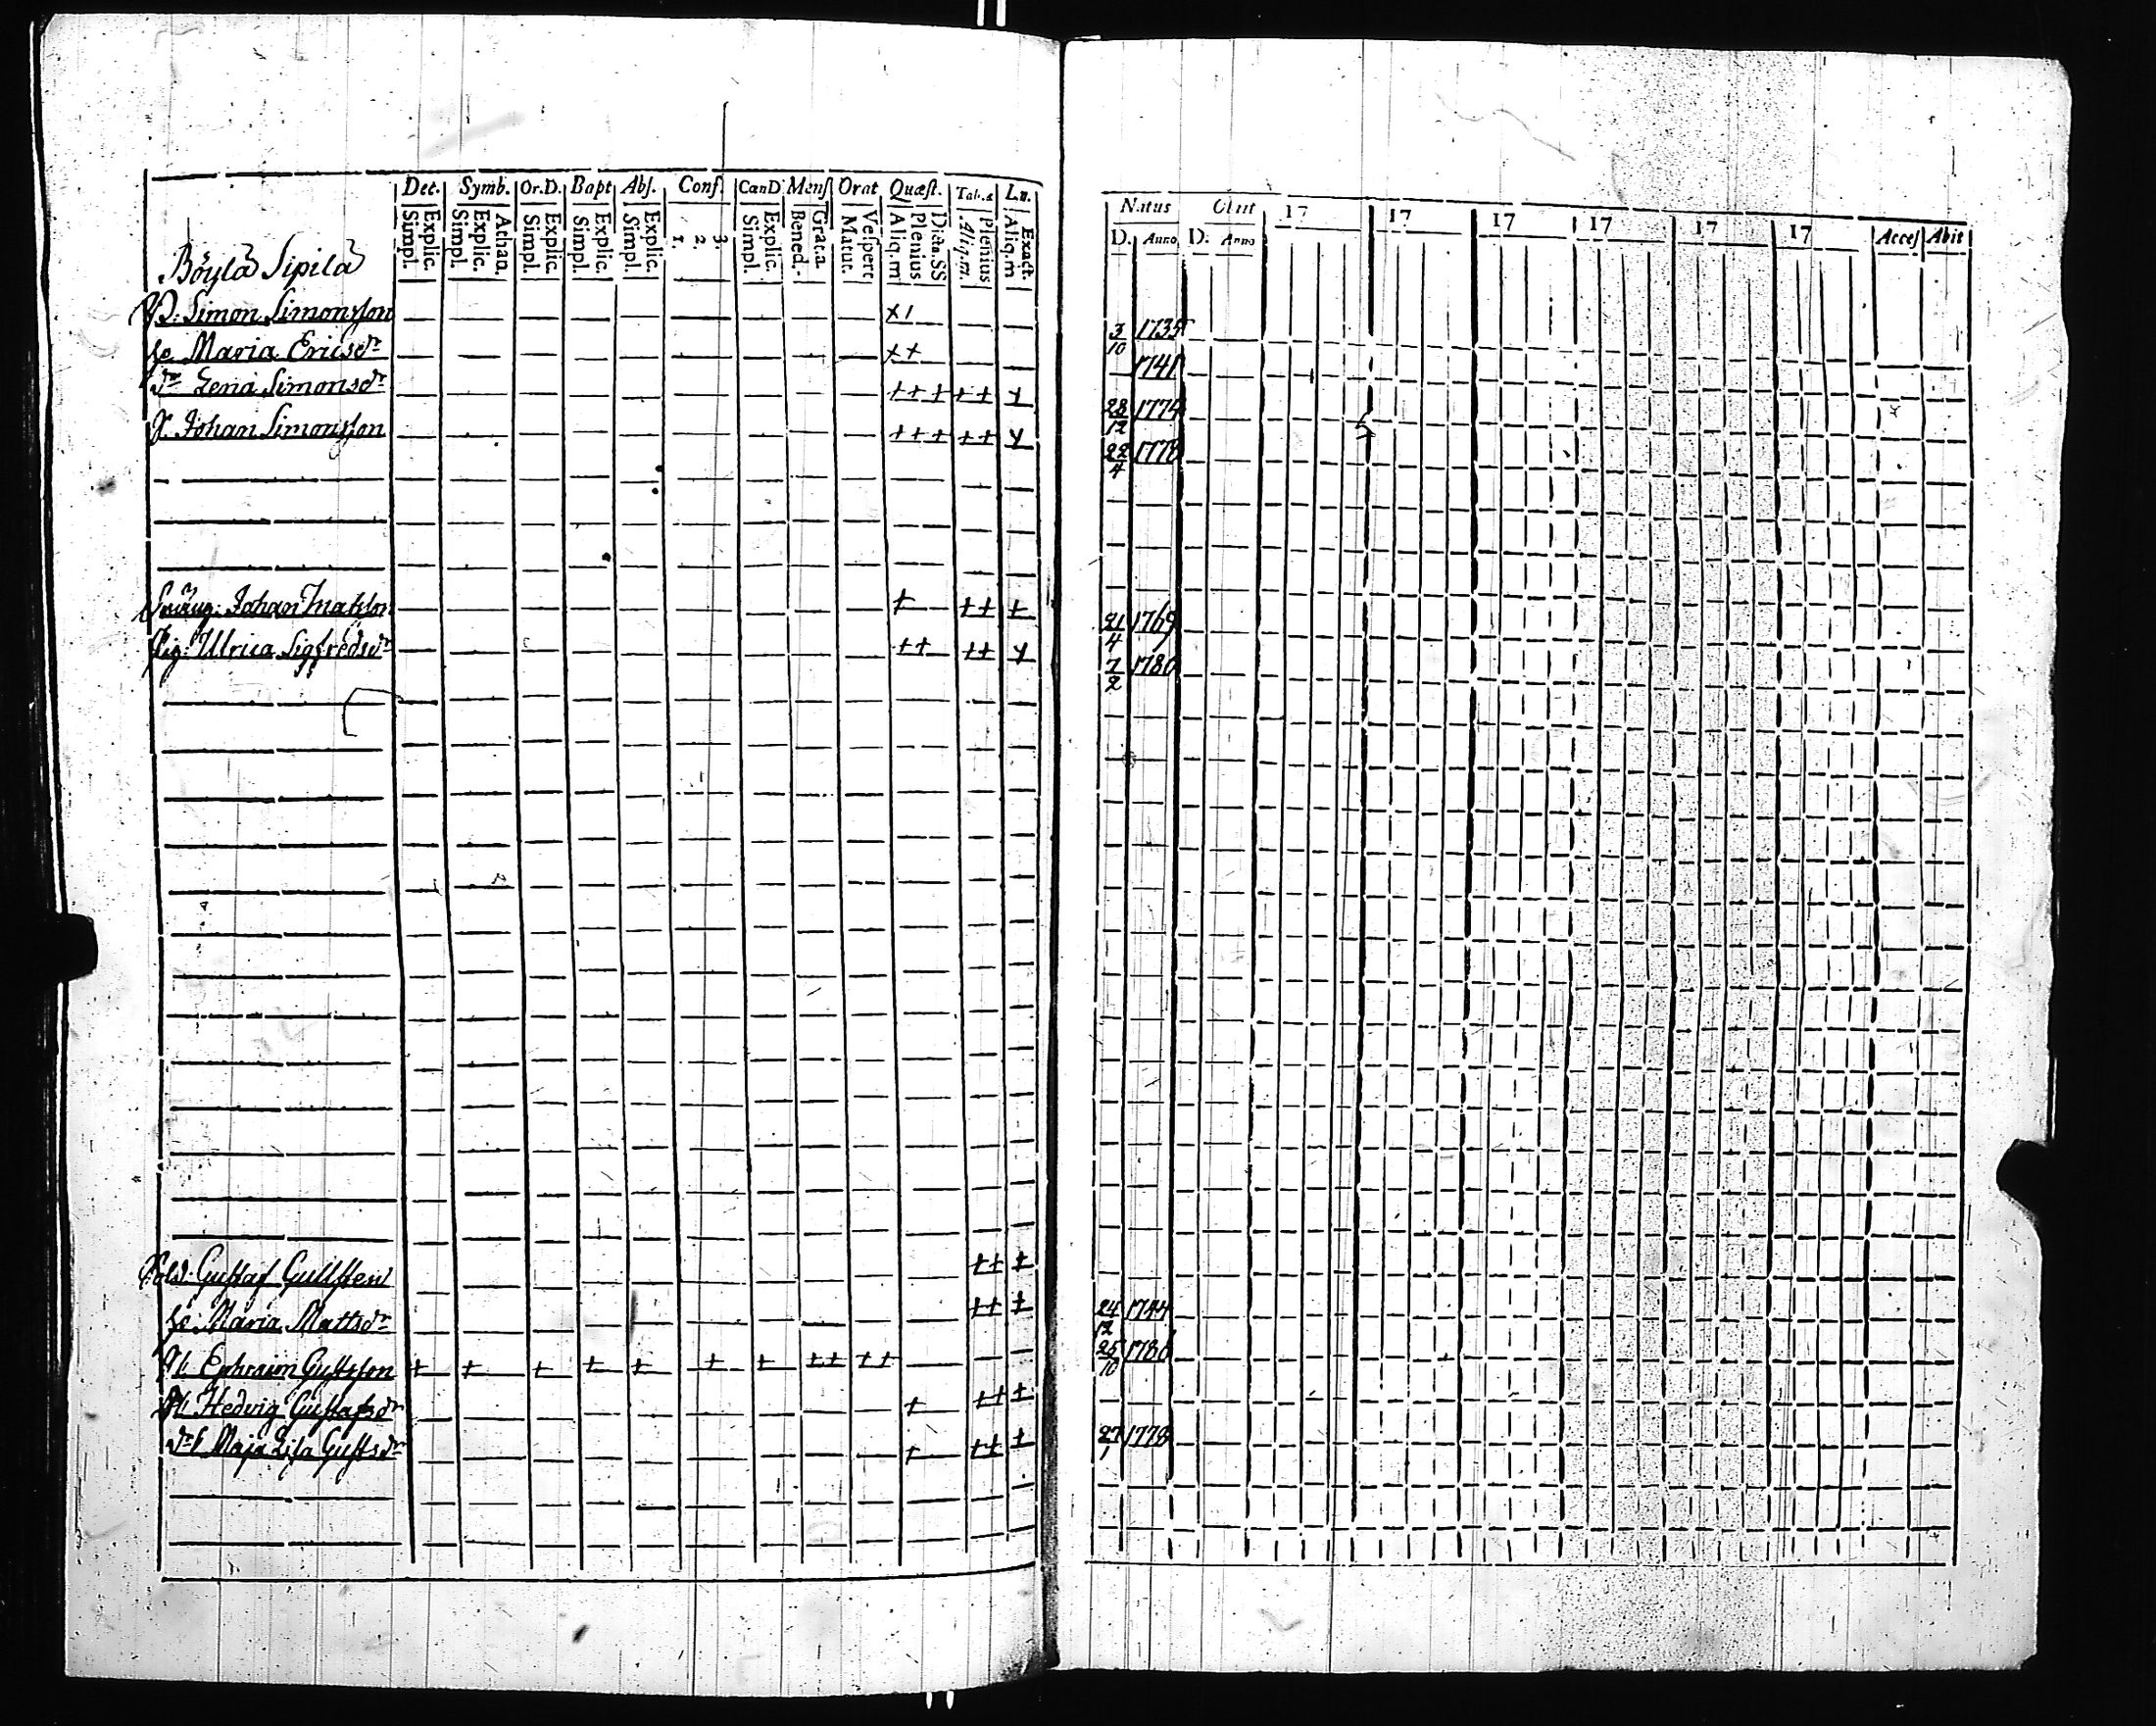 Dec. Symb. Or.D. Bapt Abs. Conf. CanD Mens Orat Quæst. Tab.æ Ln.
Simpl. Explic. Simpl. Explic. Athan. Simpl. Explic. Simpl. Explic. Simpl. Explic. 1. 2. 3. Simpl. Explic. Bened. Grat.a Matut. Vespert Aliq.m Plenius Dicta.SS Aliq.m. Plenius Aliq.m Exact.
Böylä Sipilä
B: Simon Simonsson x1
he Maria Ericsdr ++
dr Lena Simonsdr +++ ++ +
S. Johan Simonsson +++ ++ +
Johan Matsson + ++ +
Pig: Ulrica Sigfredsdr ++ ++ +
Sold: Gustaf Gullsten ++ +
he: Maria Mattsdr ++ +
Ephraim Gustsson + + + + + + + ++ ++
Hedvig Gustafsdr + ++ +
dr Maja Lisa Gustsdr + ++ +
Natus Obiit 17 17 17 17 17 17 Acces Abit
D. Anno D. Anno
3/10 1735
1741
28/12 1774
22/4 1778
21/4 1769
7/2 1780
24/12 1744
25/10 1786
27/1 1778